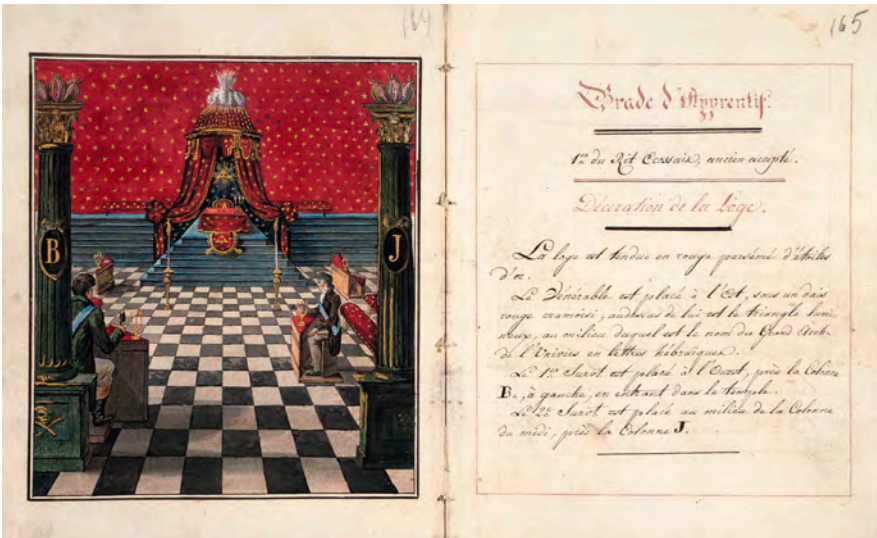 164
165
B
J
Grade d'Apprentif.
1er du Rit Ecossais, ancien accepté.
Décoration de la Loge.
La loge est tendue en rouge parsémé d'étoiles
d'or.
Le Vénérable est placé à l'Est, sous un dais
rouge cramoisi; audessus de lui est le triangle lumi-
neux, au milieu duquel est le nom du Grand Arch.
de l'Univers en lettres hébraïques.
Le 1er Survt. est placé à l'Ouest, près la Colonne
B., à gauche, en entrant dans le temple.
Le 2e Survt. est placé au milieu de la Colonne
du midi, près la Colonne J.